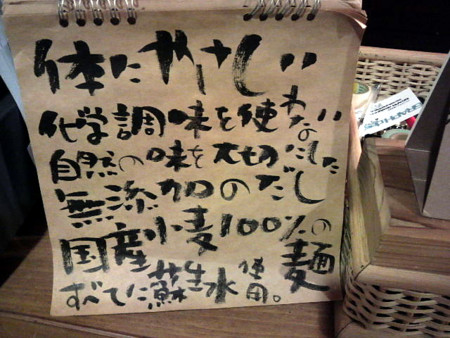 体にやさしい
化学調味を使わない
自然の味を大切にした
無添加のだし
国産小麦100%の麺
すべてに蘇生水使用。